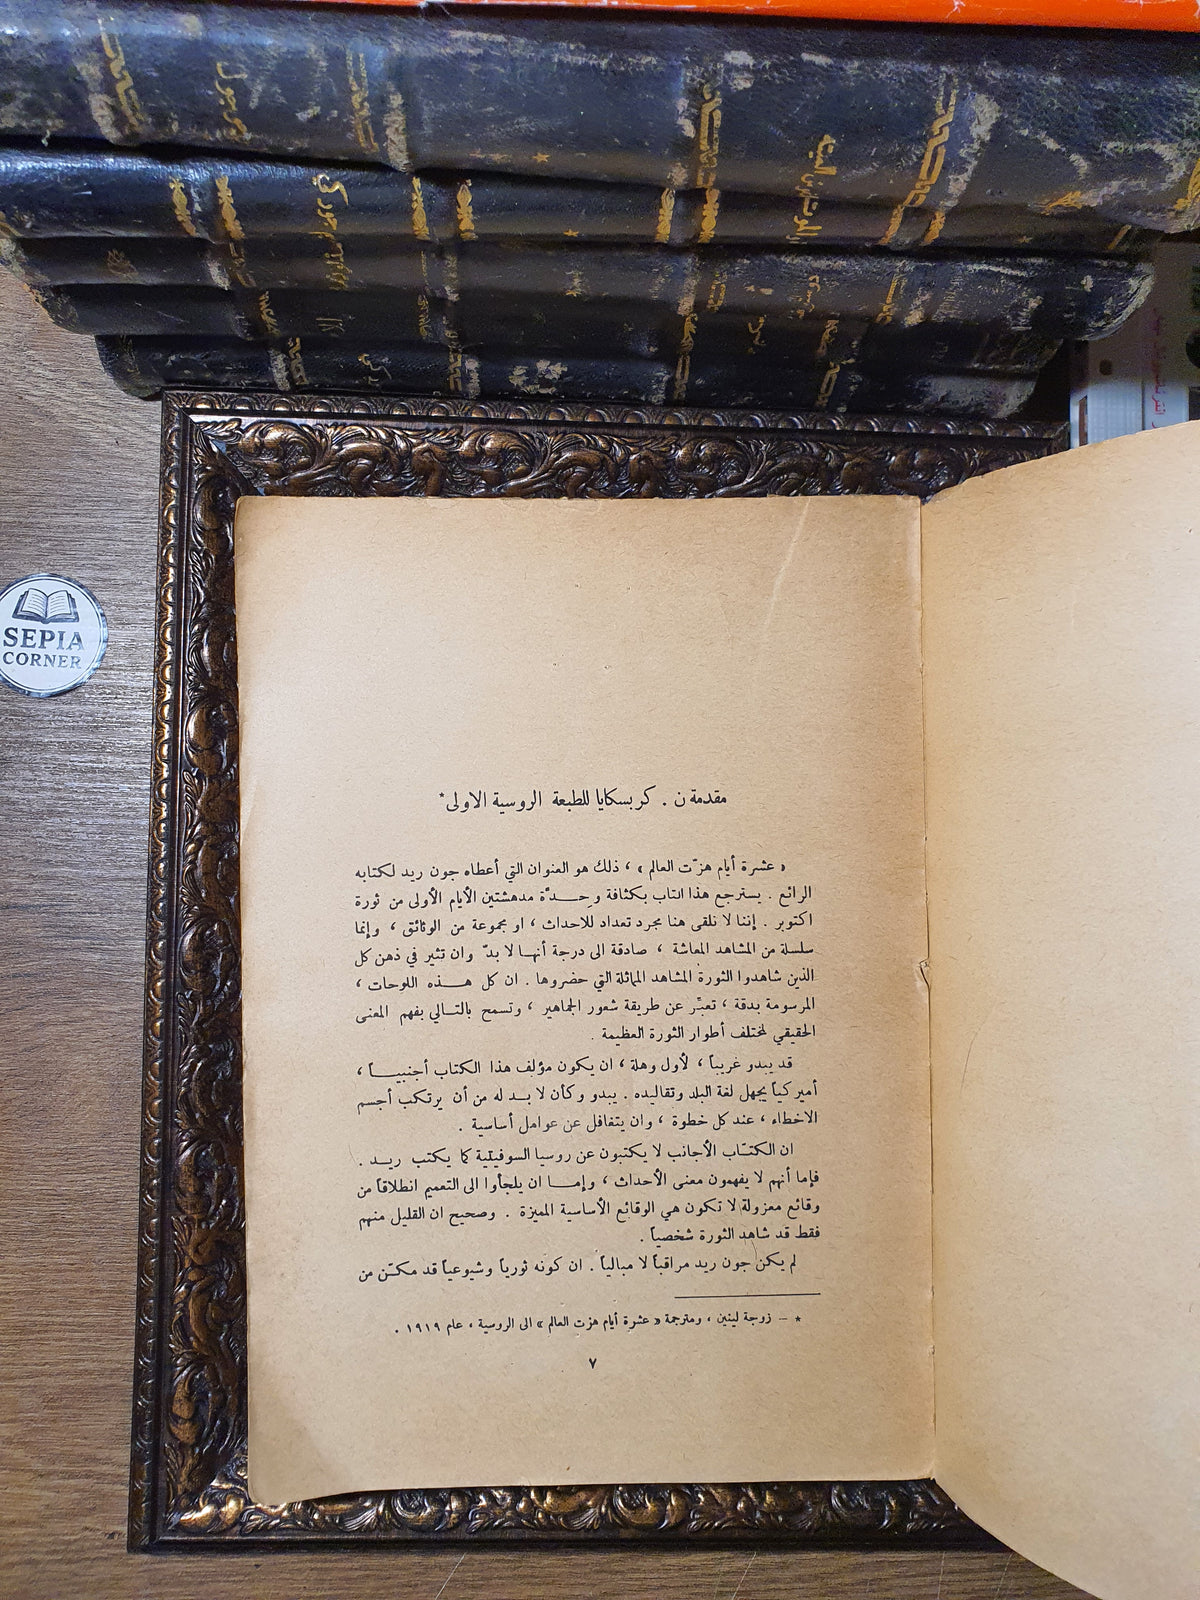 SEPIA
CORNER
مقدمة ن . كربسكايا للطبعة الروسية الاولى*
« عشرة أيام هزّت العالم » ، ذلك هو العنوان التي أعطاه جون ريد لكتابه
الرائع . يسترجع هذا انتاب بكثافة وحـــدّة مدهشتين الأيام الأولى من ثورة
اكتوبر . إننا لا نلقى هنا مجرد تعداد للاحداث ، او مجموعة من الوثائق ، وإنما
سلسلة من المشاهد المعاشة ، صادقة الى درجة أنهـا لا بدّ وان تثير في ذهن كل
الذين شاهدوا الثورة المشاهد المماثلة التي حضروها . ان كل هـــذه اللوحات ،
المرسومة بدقة ، تعبّر عن طريقة شعور الجماهير ، وتسمح بالتـالي بفهم المعنى
الحقيقي لمختلف أطوار الثورة العظيمة .
قد يبدو غريباً ، لأول وهلة ، ان يكون مؤلف هذا الكتاب أجنبيـــاً ،
أميركياً يجهل لغة البلد وتقاليده . يبدو وكأن لا بـد له من أن يرتكب أجسم
الاخطاء ، عند كل خطوة ، وان يتغافل عن عوامل أساسية .
ان الكتّاب الأجانب لا يكتبون عن روسيا السوفيتية كما يكتب ريـد .
فإما أنهم لا يفهمون معنى الأحداث ، وإمـــا ان يلجأوا الى التعميم انطلاقاً من
وقائع معزولة لا تكون هي الوقائع الأساسية المميزة . وصحيح ان القليل منهم
فقط قد شاهد الثورة شخصياً .
لم يكن جون ريد مراقباً لا مبالياً . ان كونه ثورياً وشيوعياً قد مكّن من
* – زوجة لينين ، ومترجمة « عشرة أيام هزت العالم » الى الروسية ، عام ١٩١٩ .
٧